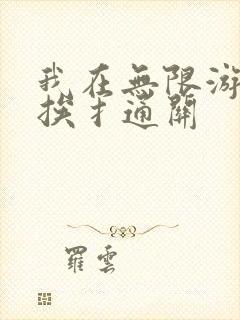 我在無限游
挨扌通關
羅雲